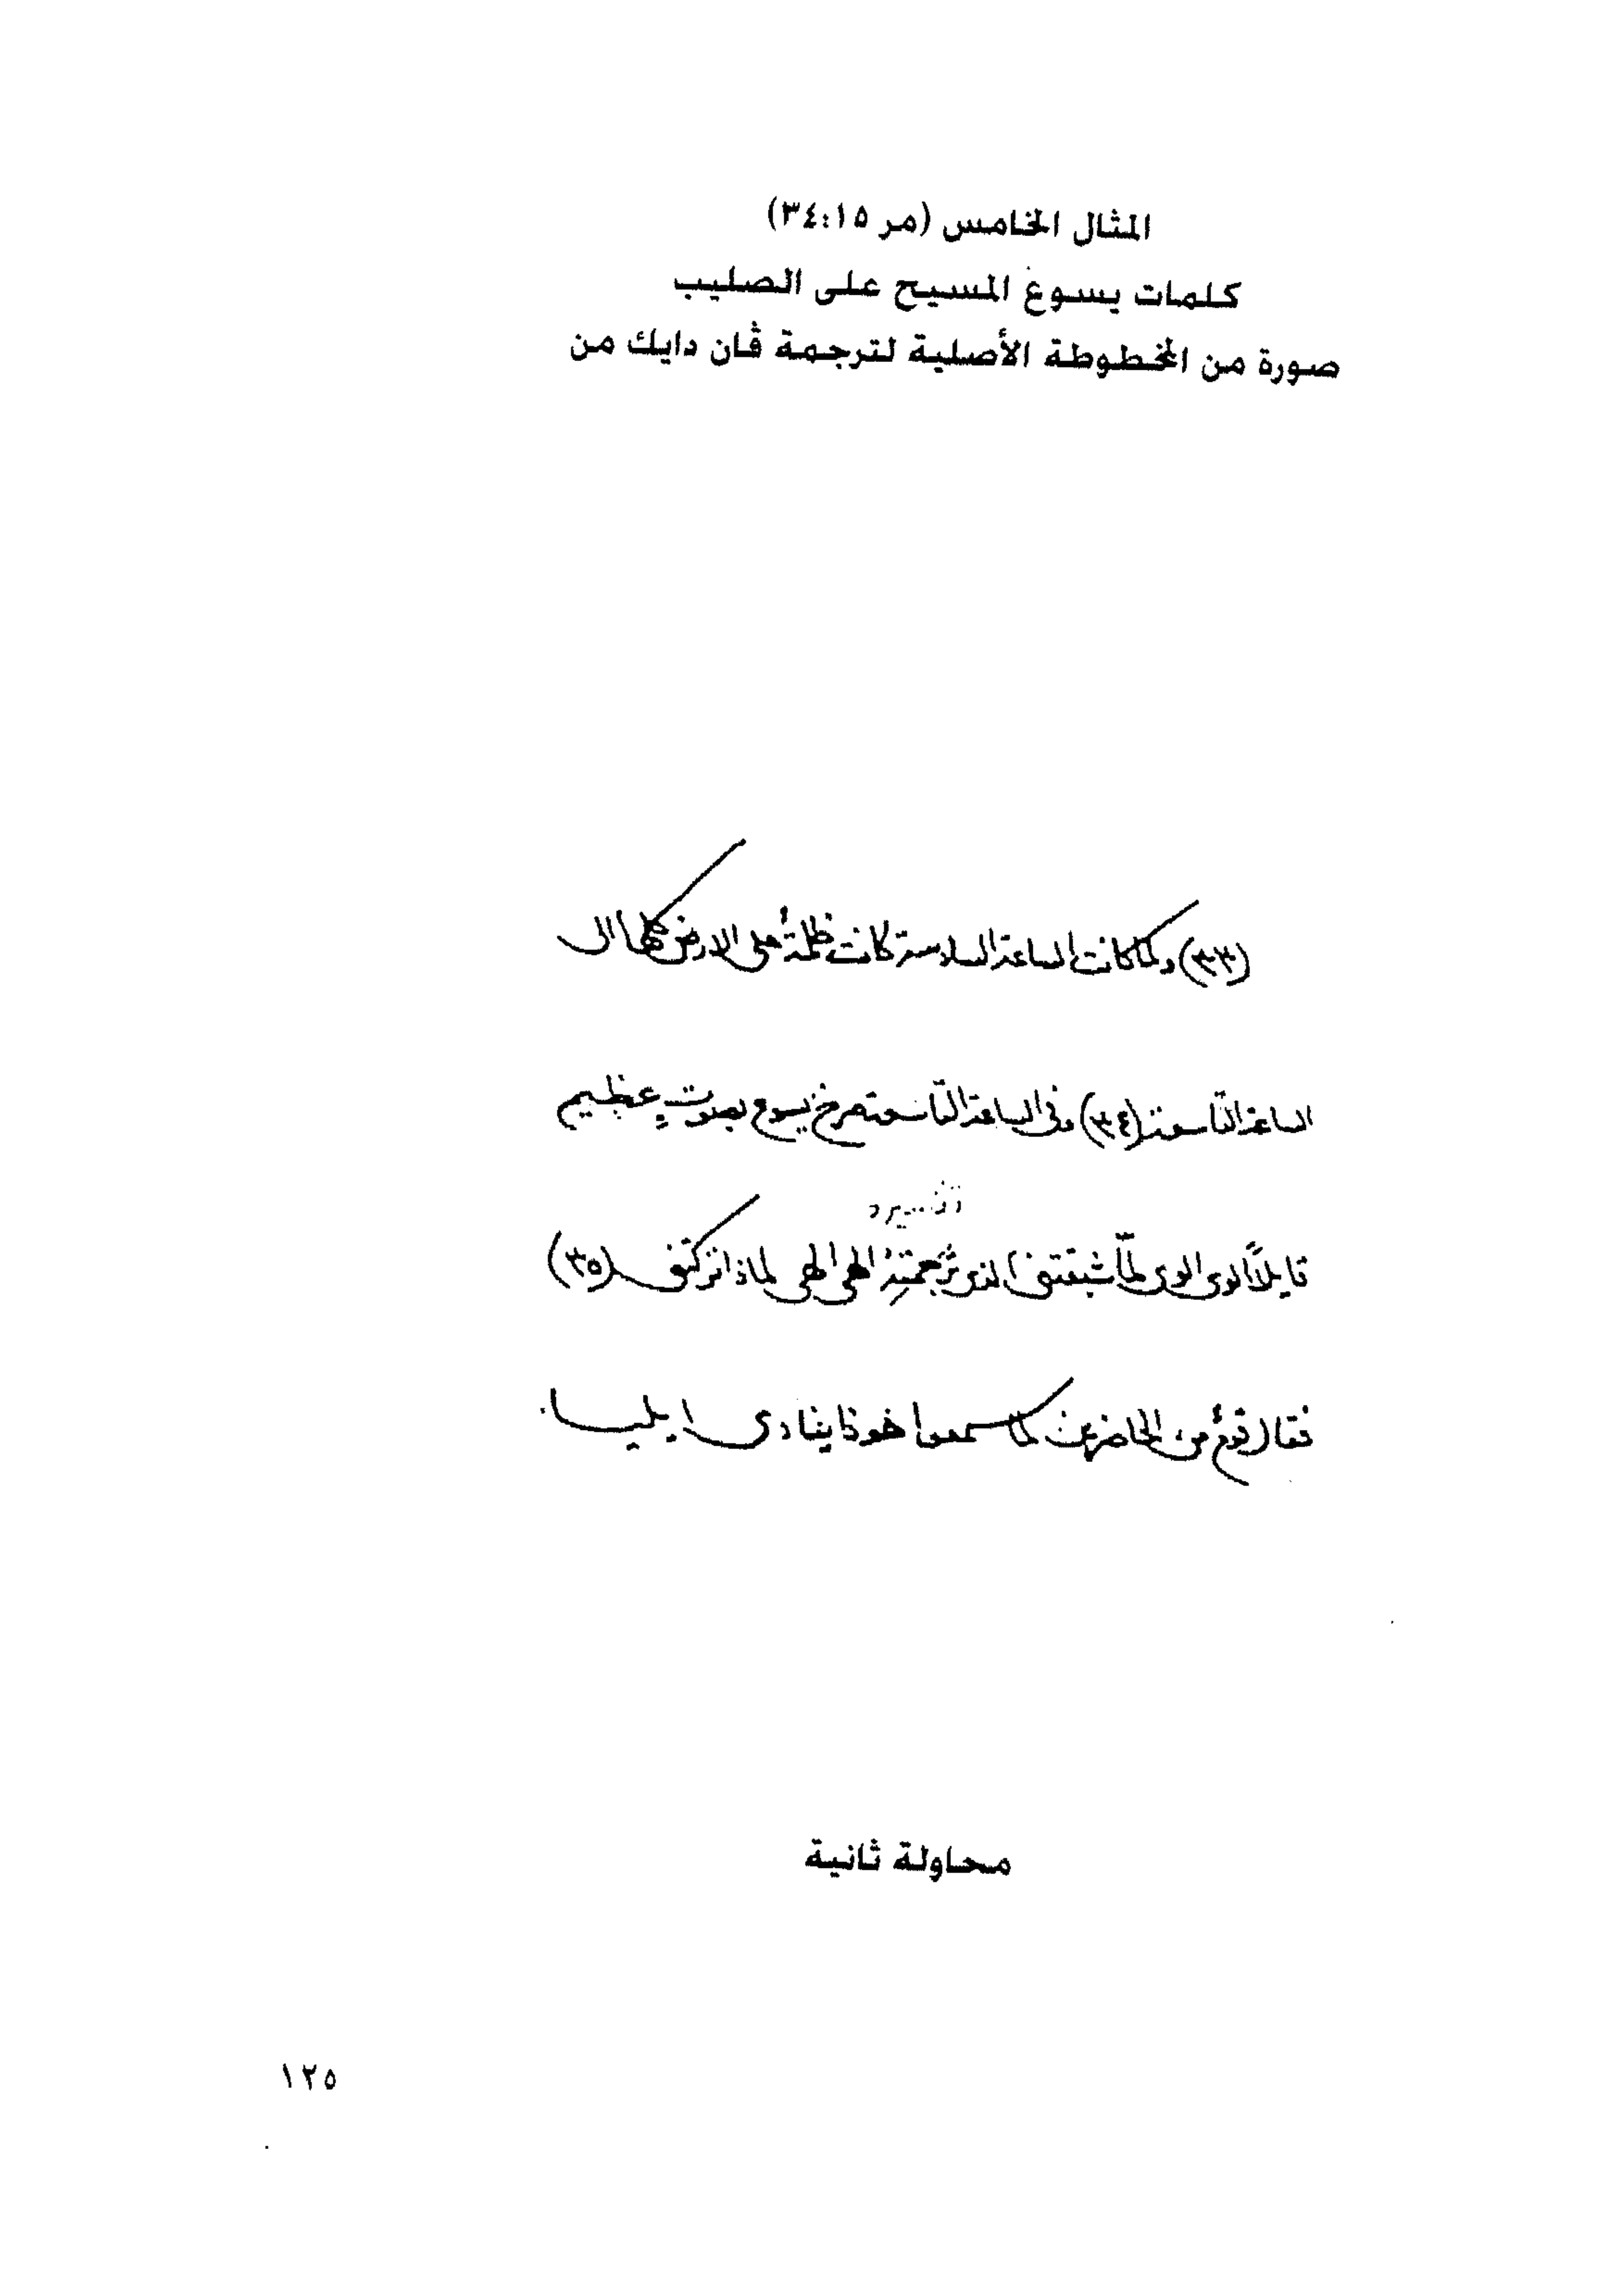 المثال الخامس (مر ٣٤:١٥)
كلمات يسوع المسيح على الصليب
صورة من المخطوطة الأصلية لترجمة ڤان دايك من
(٣٣) ولما كانت الساعة السادسة كانت ظلمةٌ على الارض كلها الى
الساعة التاسعة (٣٤) وفى الساعة التاسعة صرخ يسوع بصوتٍ عظيم
تفسيره
قايلاً الوى الوى لمّا شبقتنى الذى ترجمتهُ الهى الهى لماذا تركتنى (٣٥)
فقال قومٌ من الحاضرين لما سمعوا هوذا ينادى ايليا.
محاولة ثانية
١٢٥